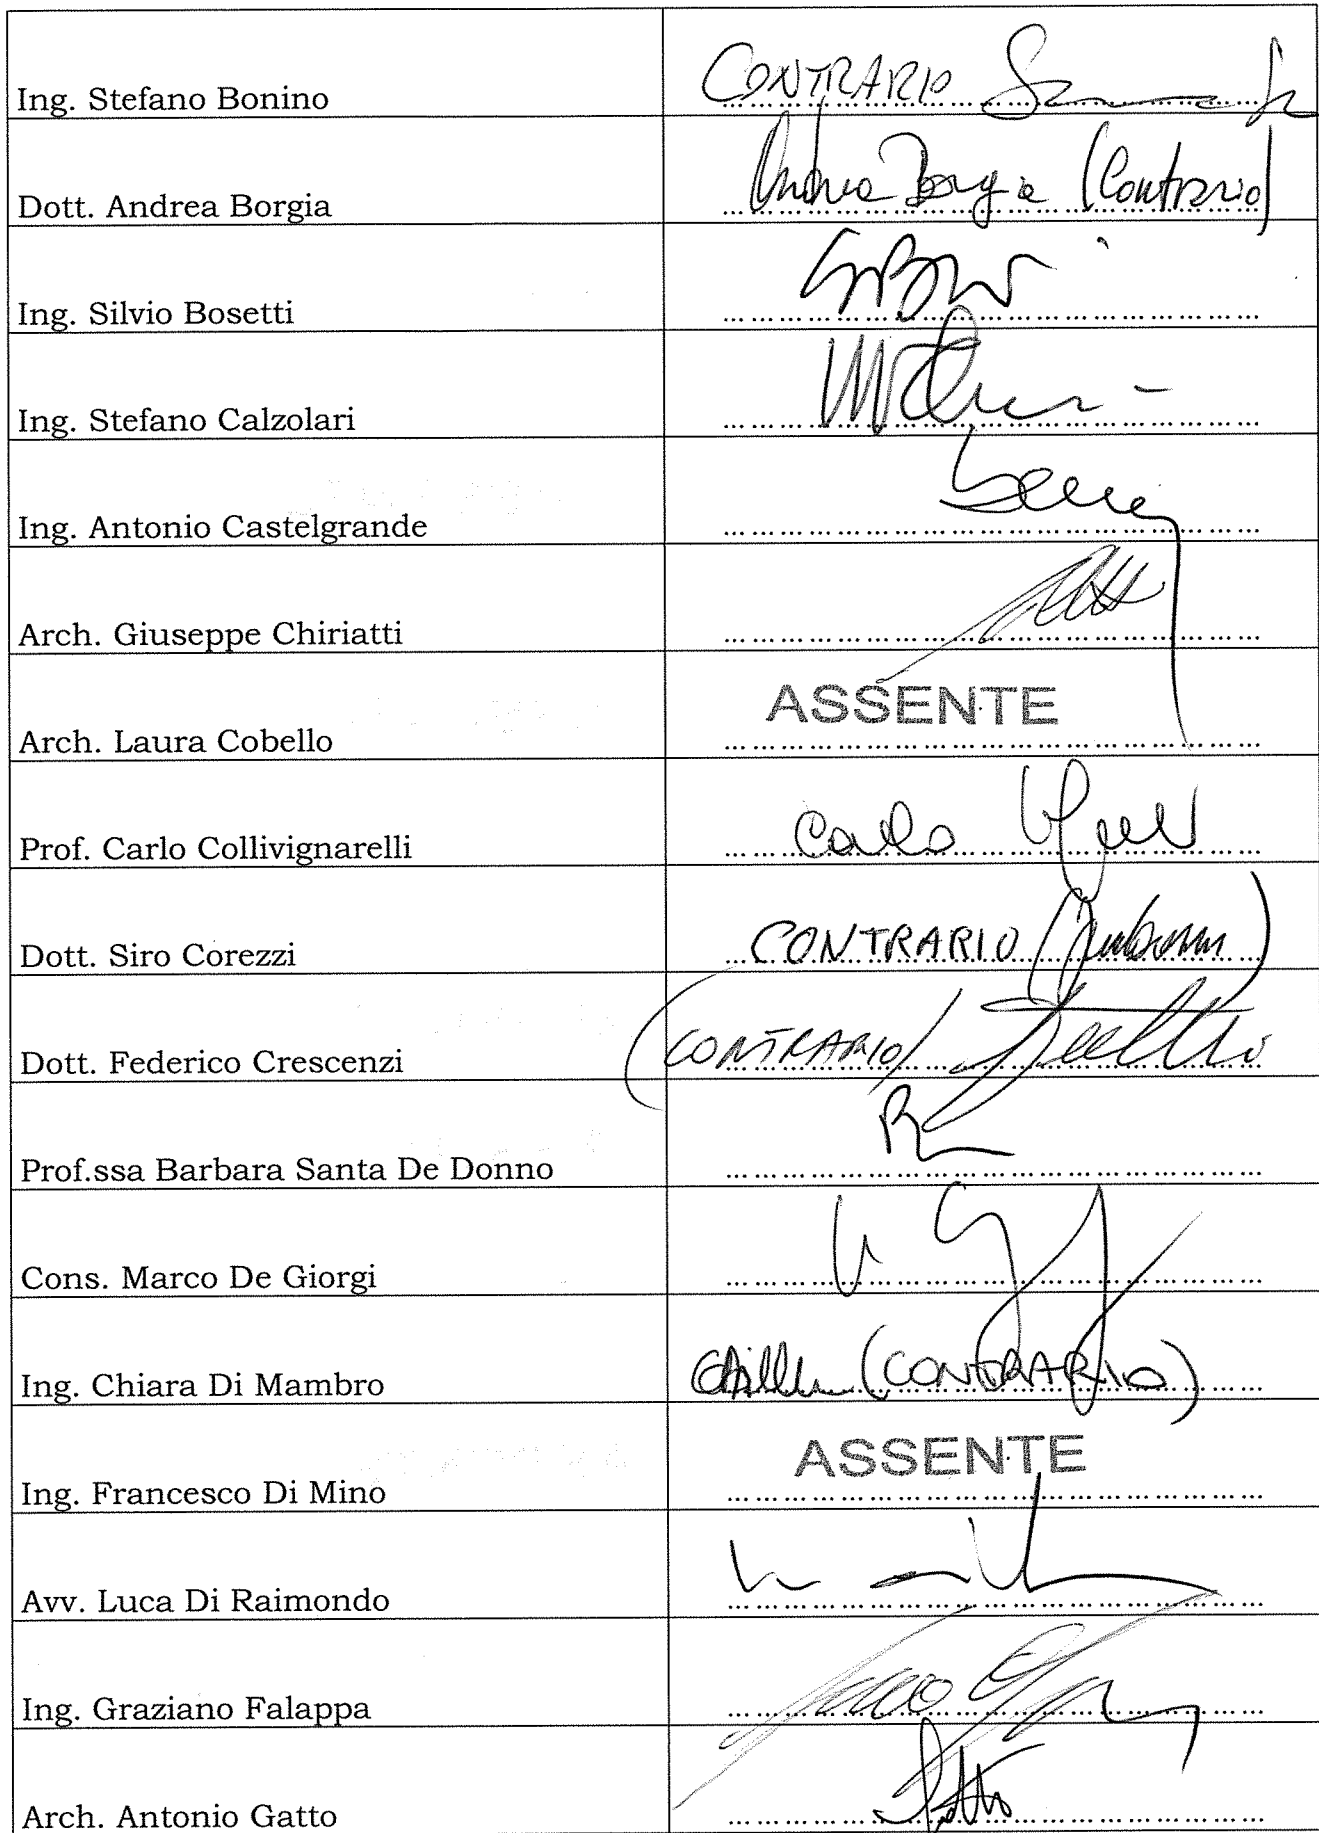 Ing. Stefano Bonino CONTRARIO
Dott. Andrea Borgia Andrea Borgia (Contrario)
Ing. Silvio Bosetti
Ing. Stefano Calzolari
Ing. Antonio Castelgrande
Arch. Giuseppe Chiriatti
Arch. Laura Cobello ASSENTE
Prof. Carlo Collivignarelli Carlo
Dott. Siro Corezzi CONTRARIO
Dott. Federico Crescenzi (CONTRARIO)
Prof.ssa Barbara Santa De Donno
Cons. Marco De Giorgi
Ing. Chiara Di Mambro (CONTRARIO)
Ing. Francesco Di Mino ASSENTE
Avv. Luca Di Raimondo
Ing. Graziano Falappa
Arch. Antonio Gatto